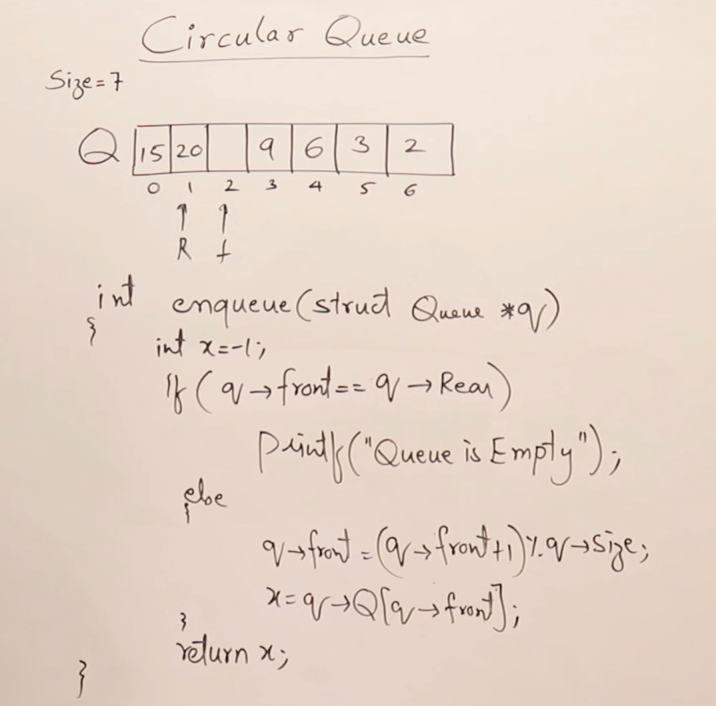 Circular Queue
Size=7
Q 15 20 9 6 3 2
0 1 2 3 4 5 6
↑ ↑
R f
int enqueue(struct Queue *q)
{
int x=-1;
If (q→front== q→Rear)
printf("Queue is Empty");
else
{
q→front=(q→front+1)%q→size;
x=q→Q[q→front];
}
return x;
}